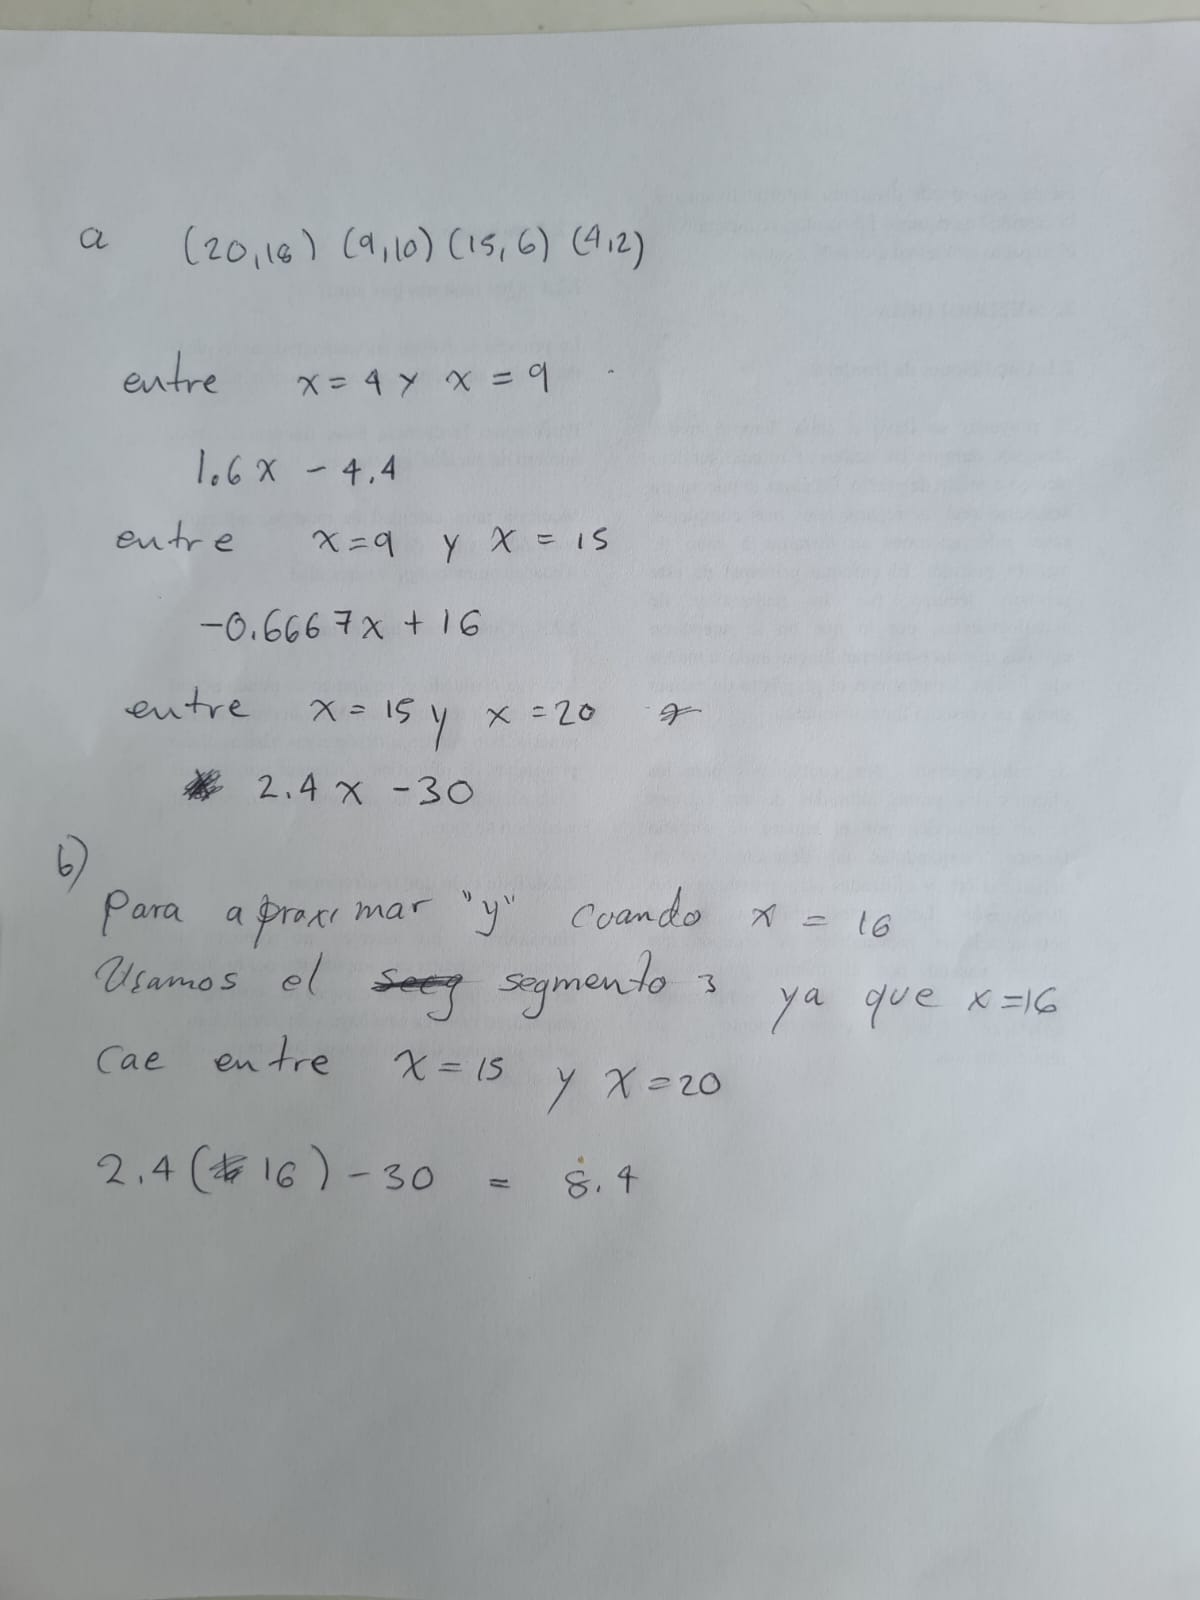 a (20,18) (9,10) (15,6) (4,2)
entre x = 4 y x = 9
1.6x - 4.4
entre x=9 y x = 15
-0.6667x + 16
entre x = 15 y x = 20
2.4x - 30
b)
Para aproximar "y" cuando x = 16
Usamos el segmento 3 ya que x=16
Cae entre x = 15 y x = 20
2.4(16) - 30 = 8.4